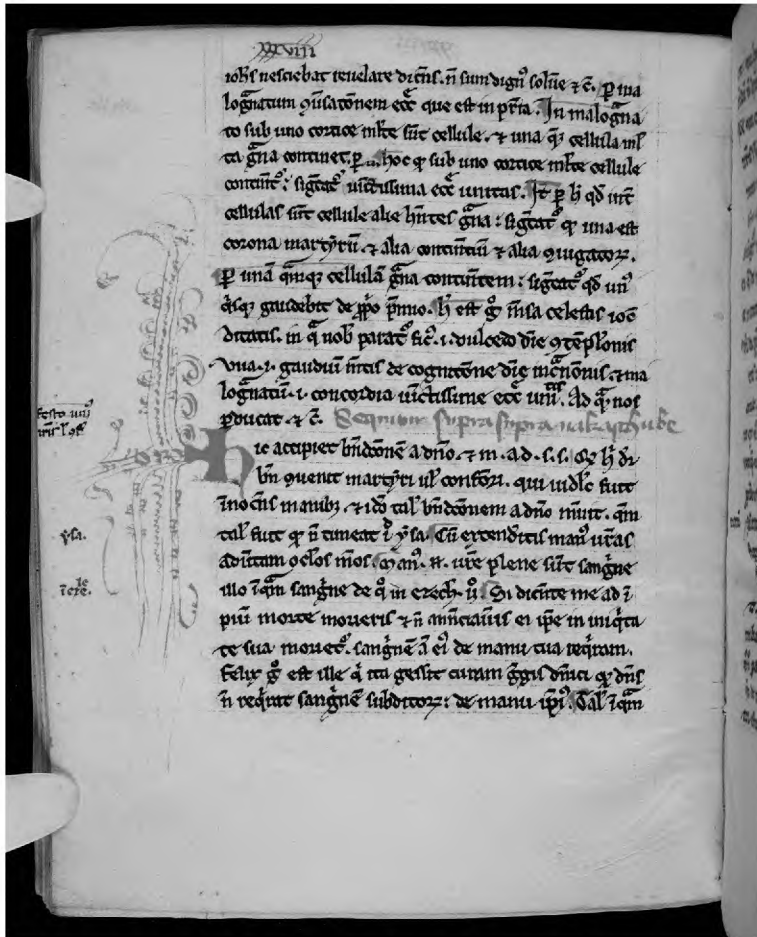 xxviii
ioħs nesciebat reuelare dicēs. n̄ sum dign⁹ solu̅e ⁊ c̄. ꝑ ma
logranatum ꝯuersatōnem ecc̄e que est in pr̄ia. In malogͣna
to sub uno cortice ml̄te sūt cellule. ⁊ una q̄qꝫ cellula ml̄
ta gͣna continet. ꝑ hoc ꝙ sub uno cortice ml̄te cellule
contine̅t᷒ : sig̅cat᷒ ui̅ctissima ecc̄e unitas. It̄ ꝑ ħ qd̄ int̄
cellulas sūt cellule alie ħn̄tes gͣna : sig̅cat᷒ ꝙ una est
corona martyrū. ⁊ alia contine̅tiū ⁊ alia ꝯiugatoꝝ.
ꝑ unā q̄mqꝫ cellulā gͣna contine̅tem : sig̅cat᷒ qd̄ un⁹
q̄sqꝫ gaudebit de ꝓp̄o p̄mio. ħ est gͦ m̄sa celestis ioc̄
ditatis. in qͣ nob̄ parat᷒ fic⁹. i. dulcedo diu̅e ꝯte̅plōnis
vua. i. gaudiū m̄tis de cognitōne diu̅e incͣnōnis. ⁊ ma
logͣnatū. i. concordia ui̅ctissime ecc̄e unitas. Ad qͣ nos
ꝑducat. ⁊ c̄. Sequitur supra supra
Hic accipiet bn̄dcōnem a dn̄o. ⁊ m. a d. s. s. ħ di
bn̄ ꝯuenit martyri ul̄ confess̄ori. qui uidl̄c fuit
īnoce̅s manibꝫ. ⁊ idō tal̄ bn̄dcōnem a dn̄o meruit. qm̄
tal̄ fuit ꝙ n̄ timeat i̅ ysa. Cū extenditis man⁹ ur̄as
aduertam oc̄los meos. man⁹. n̄. ur̄e plene sūt sangͥne
illo i̅qͣm sangͥne de qͦ in ezech. u᷒. Si dice̅te me ad i̅
piū morte morieris ⁊ n̄ annunciaueris ei ip̄e in iniqͥta
te sua moriet᷒. sangͥnē aūt ei⁹ de manu tua reqͥram.
felix gͦ est ille qͥ ita gessit curam gͤgis dn̄ici ꝙ dn̄s
n̄ reqͥrat sangͥnē subditoꝝ : de manu ip̄i⁹. Tal̄ i̅qͣm
festo uni⁹
m̄ris l̄ ꝯf̄
ysa.